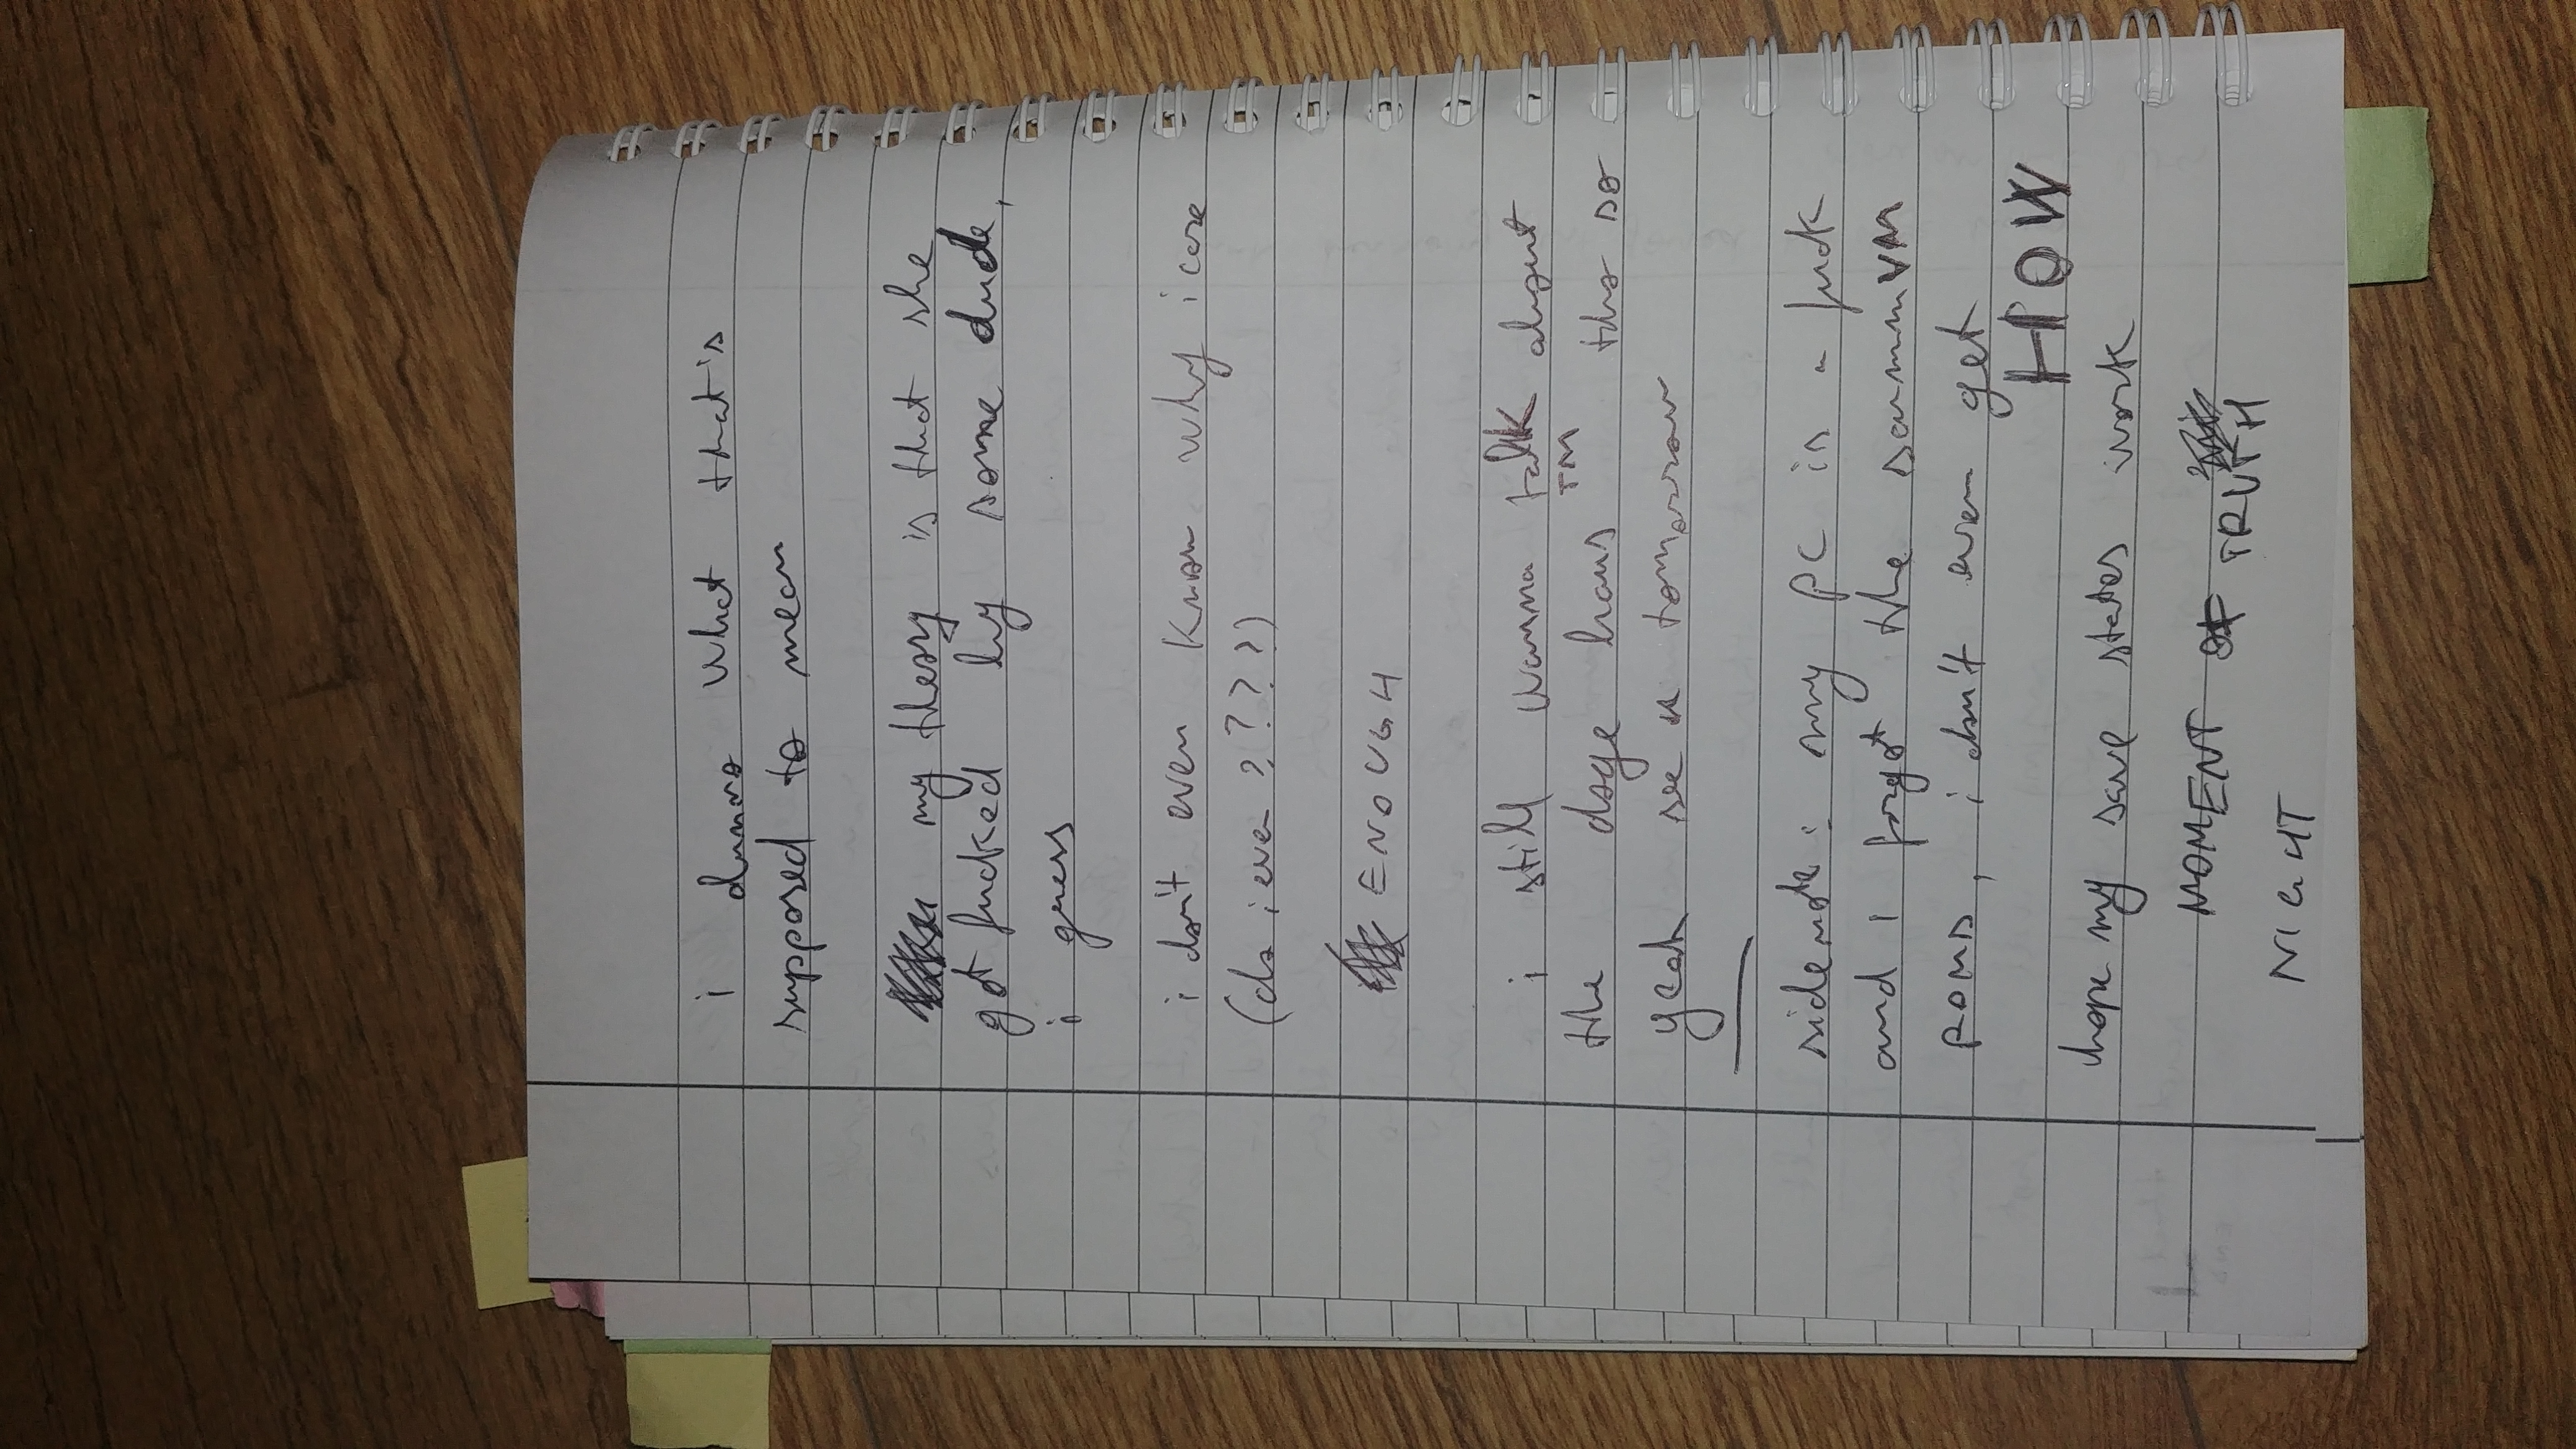 i dunno what that's
supposed to mean
my theory is that she
got fucked by some dude,
i guess
i don't even know why i care
(do i even ????)
ENOUGH
i still wanna talk about
the doge haus™ tho so
yeah see u tomorrow
sidenote: my PC is a fuck
and I forgot the scummVM
ROMS, i don't even get
HOW
hope my save states work
MOMENT OF TRUTH
NIGHT